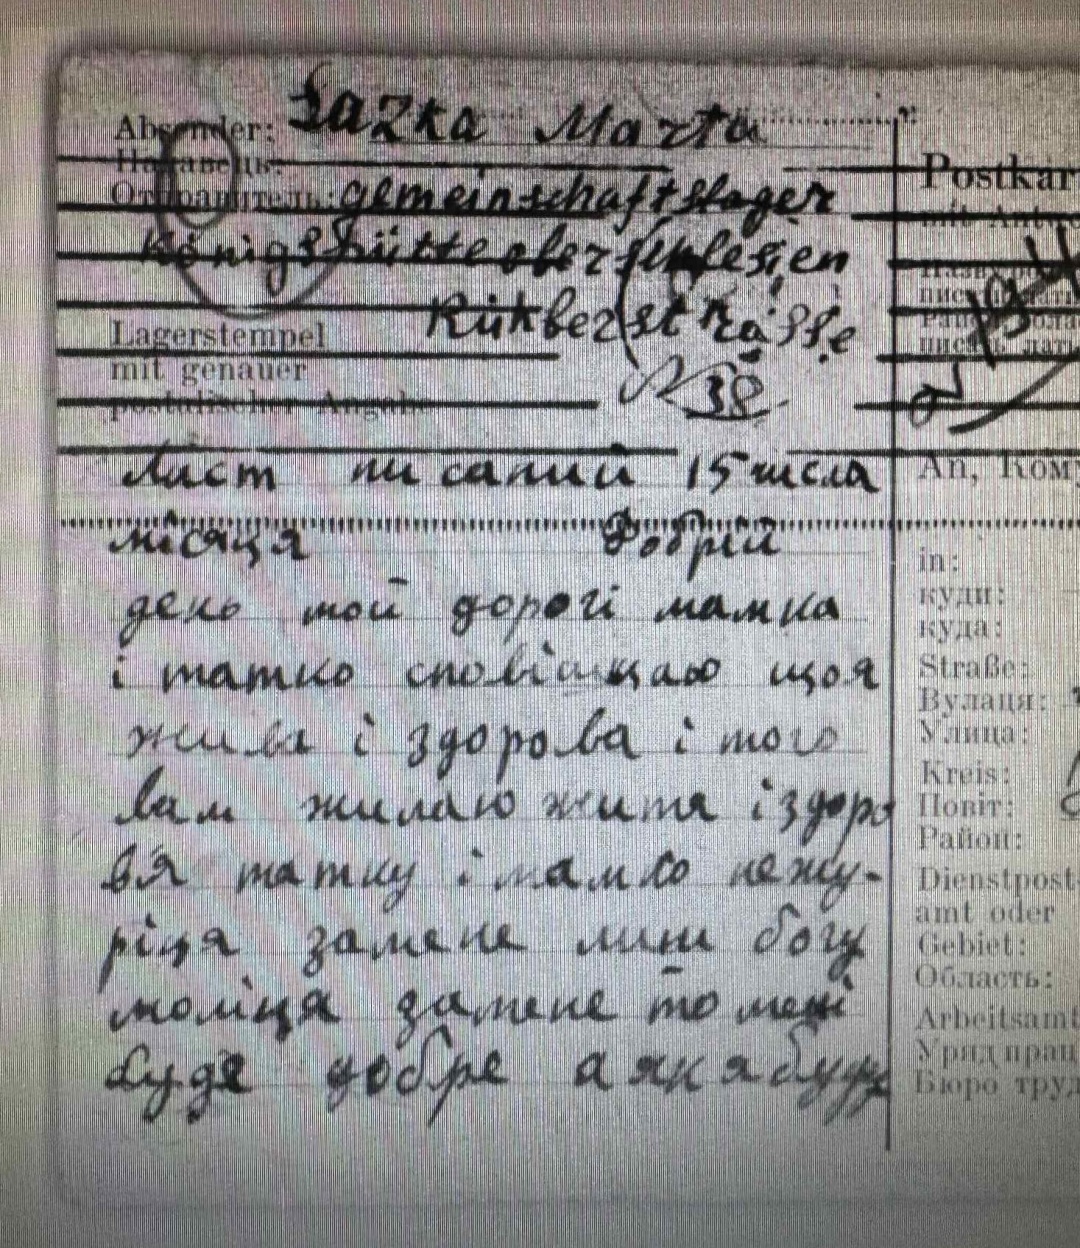 Absender: Łazka Marta
Надавець:
Отправитель: gemeinschaftslager
Königshütte oberschlesien
Lagerstempel
mit genauer
postalischer Angabe
38
Лист писаний 15 числа
місяця Добрій
день мої дорогі мамка
і татко сповіщаю що я
жива і здорова і того
вам жилаю житя і здоро
вя татку і мамко не жу-
ріця за мене лиш богу
моліця за мене то мені
буде добре а як я буду
Postkar
mit Antwo
An, Кому
in:
куди:
куда:
Straße:
Вулаця:
Улица:
Kreis:
Повіт:
Район:
Dienstpost-
amt oder
Gebiet:
Область:
Arbeitsamt
Уряд прац
Бюро труд